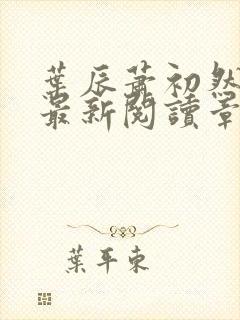 葉辰蕭初然
最新閱讀章
葉平東